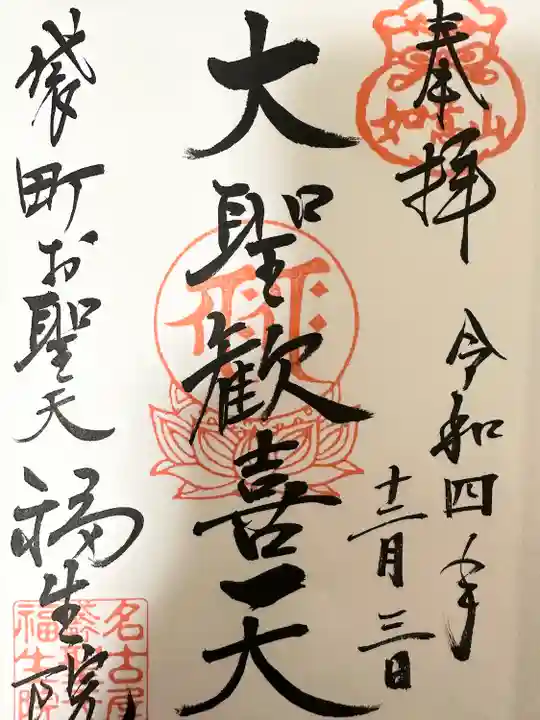 奉拝
令和四年
十二月三日
大聖歓喜天
袋町お聖天
福生院
如意山
名古屋
福生院